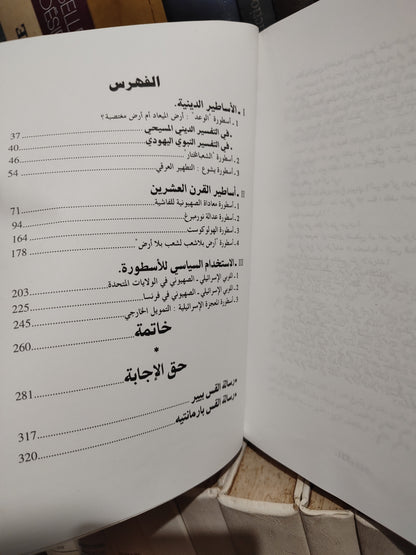 الفهرس
I ـ الأساطير الدينية.
1 ـ أسطورة "الوعد" : أرض الميعاد أم أرض مغتصبة؟
ـ في التفسير الديني المسيحي ........ 37
ـ في التفسير النبوي اليهودي ........ 40
2 ـ أسطورة "الشعب المختار" ........ 46
3 ـ أسطورة يشوع : التطهير العرقي ........ 54
II ـ أساطير القرن العشرين
1 ـ أسطورة معاداة الصهيونية للفاشية ........ 71
2 ـ أسطورة عدالة نورمبرغ ........ 94
3 ـ أسطورة الهولوكوست ........ 164
4 ـ أسطورة "أرض بلا شعب لشعب بلا أرض" ........ 178
III ـ الاستخدام السياسي للأسطورة.
1 ـ اللوبي الإسرائيلي ـ الصهيوني في الولايات المتحدة ........ 203
2 ـ اللوبي الإسرائيلي ـ الصهيوني في فرنسا ........ 225
3 ـ أسطورة المعجزة الإسرائيلية : التمويل الخارجي ........ 245
خاتمة ........ 260
*
حق الإجابة ........ 281
• رسالة القس بيير ........ 317
• رسالة القس بارمانتيه ........ 320